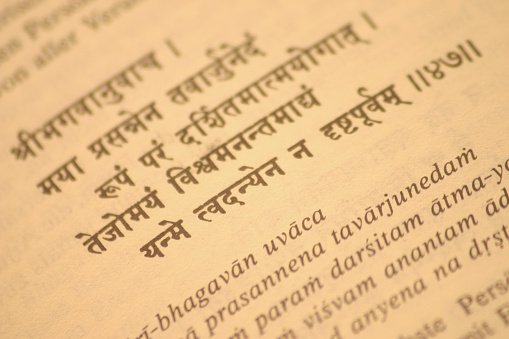 aller
श्रीभगवानुवाच ।
मया प्रसन्नेन तवार्जुनेदं
रूपं परं दर्शितमात्मयोगात् ।
तेजोमयं विश्वमनन्तमाद्यं
यन्मे त्वदन्येन न दृष्टपूर्वम् ॥४७॥
rī-bhagavān uvāca
ā prasannena tavārjunedaṁ
ṁ paraṁ darśitam ātma-yo
viśvam anantam ād
anyena na dṛṣṭ